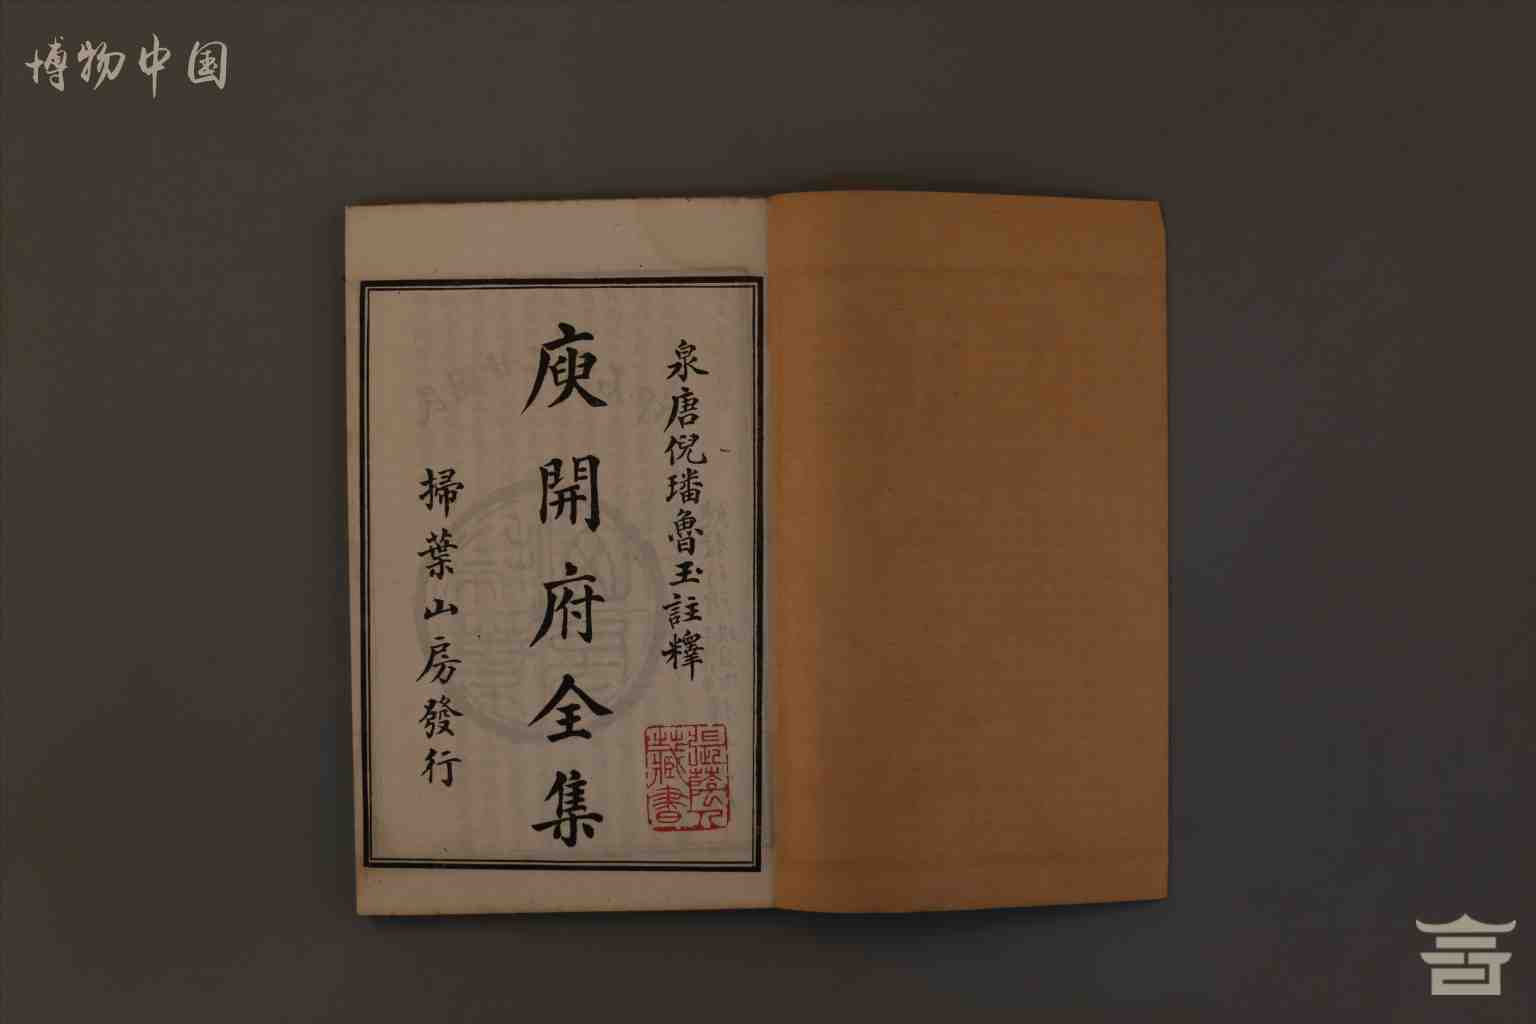 博物中国
泉唐倪璠魯玉註釋
庾開府全集
掃葉山房發行
張蔭人
藏書